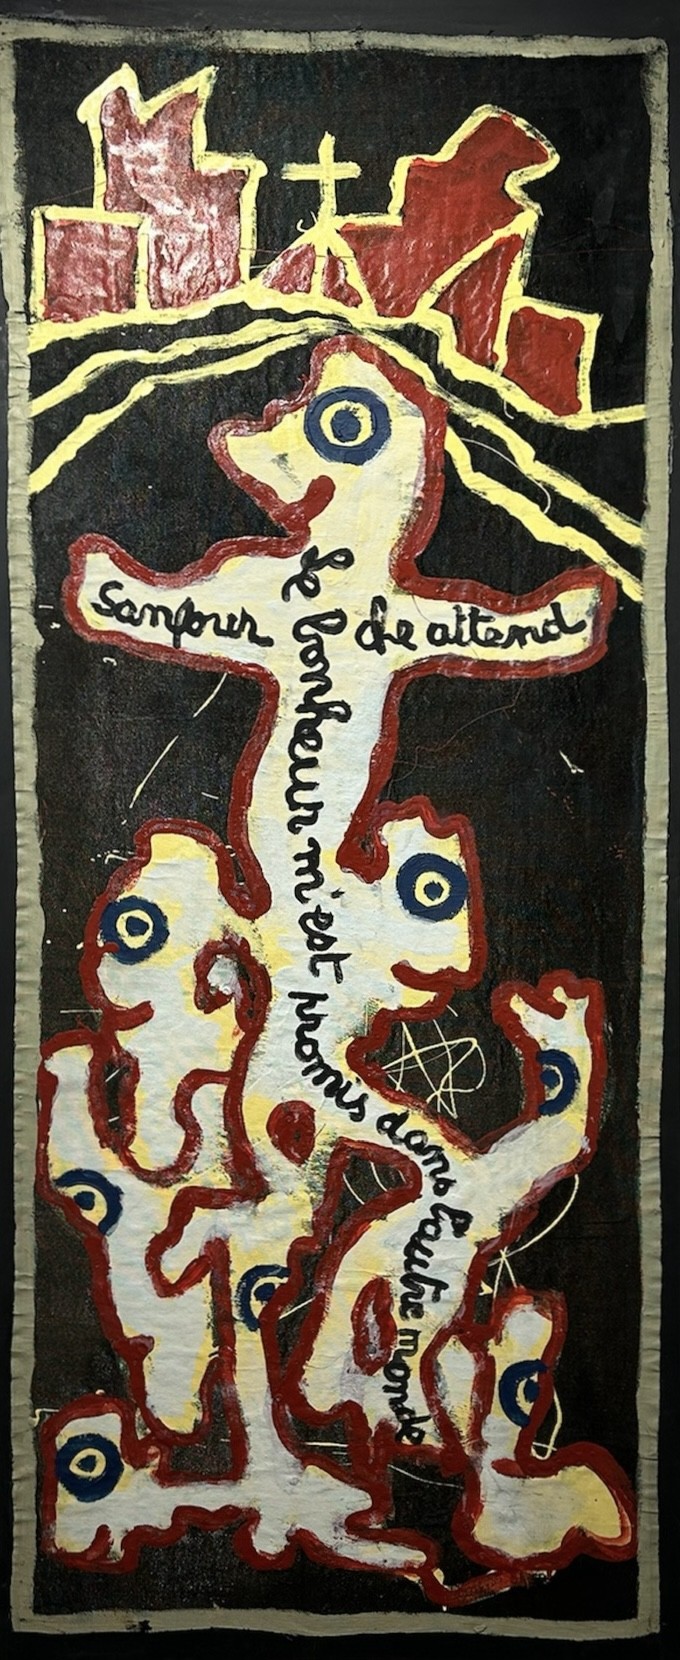 Sanpour
che attend
Le bonheur m'est promis dans l'autre monde